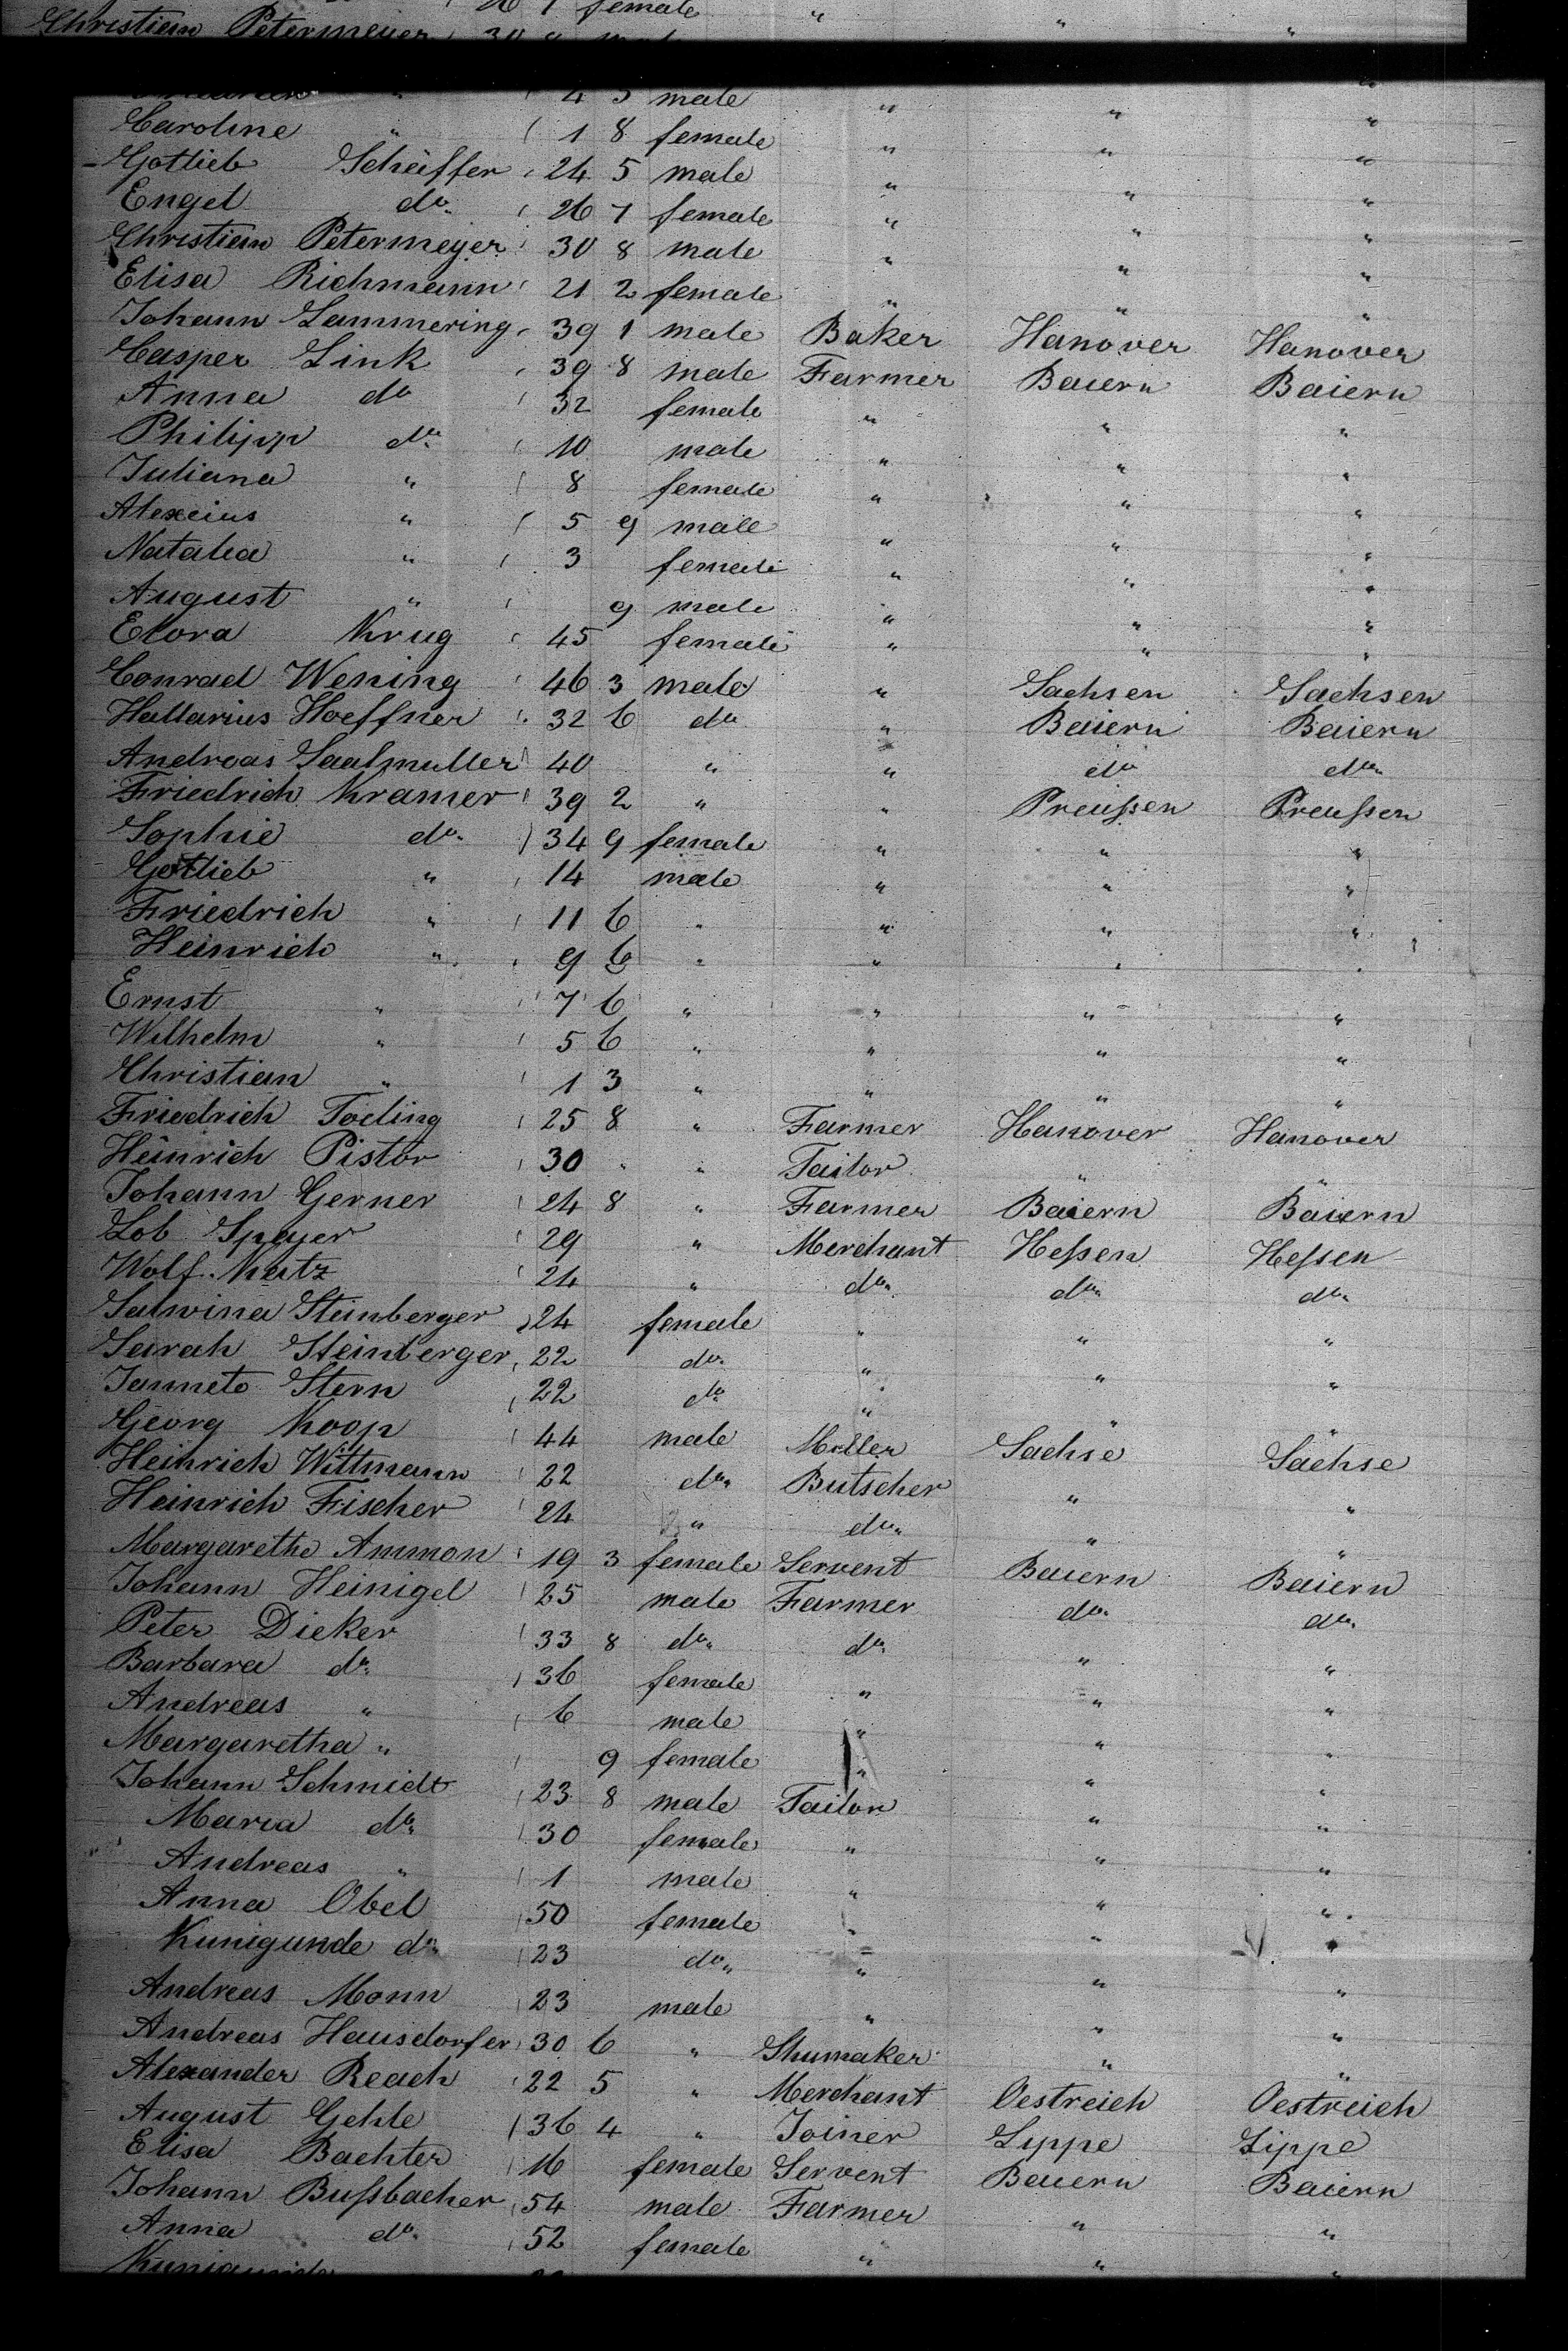 26 7 female "
Christian Petermeyer 30 8 male " "
4 5 male " " "
Caroline " 1 8 female " " "
Gotlieb Scheiffer 24 5 male " " "
Engel do. 26 7 female " " "
Christian Petermeyer 30 8 male " " "
Elisa Richmann 21 2 female " " "
Johann Lammering 39 1 male Baker Hanover Hanover
Casper Link 39 8 male Farmer Baiern Baiern
Anna do 32 female " " "
Philipp do. 10 male " " "
Juliana " 8 female " " "
Alexcius " 5 9 male " " "
Natalia " 3 female " " "
August " 9 male " " "
Elora Krug 45 female " " "
Conrad Wening 46 3 male " Sachsen Sachsen
Hallarius Hoeffner 32 6 do " Baiern Baiern
Andreas Saalmuller 40 " " do do
Friedrich Kramer 39 2 " " Preußen Preußen
Sophie do. 34 9 female " " "
Gottlieb " 14 male " " "
Friedrich " 11 6 " " " "
Heinrich " 9 6 " " " "
Ernst " 7 6 " " " "
Wilhelm " 5 6 " " " "
Christian " 1 3 " " " "
Friedrich Toeling 25 8 " Farmer Hanover Hanover
Heinrich Pistor 30 " " Tailor " "
Johann Gerner 24 8 " Farmer Baiern Baiern
Lob Speyer 29 " Merchant Heßen Heßen
Wolf Kutz 24 " do. do. do.
Salwina Steinberger 24 female " " "
Sarah Steinberger 22 do. " " "
Jannete Stern 22 do " " "
Georg Koop 44 male Miller Sachse Sachse
Heinrich Wittmann 22 do. Butscher " "
Heinrich Fischer 24 " do. " "
Margarethe Ammon 19 3 female Servent Baiern Baiern
Johann Heinigel 25 male Farmer do. do.
Peter Dieker 33 8 do. do. " "
Barbara do. 36 female " " "
Andreas " 6 male " " "
Margaretha " 9 female " " "
Johann Schmidt 23 8 male Tailor " "
Maria do. 30 female " " "
Andreas " 1 male " " "
Anna Obel 50 female " " "
Kunigunde do. 23 do. " " "
Andreas Monn 23 male " " "
Andreas Hausdorfer 30 6 " Shumaker " "
Alexander Reach 22 5 " Merchant Oestreich Oestreich
August Gehle 36 4 " Joiner Lippe Lippe
Elisa Bachter 16 female Servent Baiern Baiern
Johann Bußbacher 54 male Farmer " "
Anna do. 52 female " " "
Kunigunde